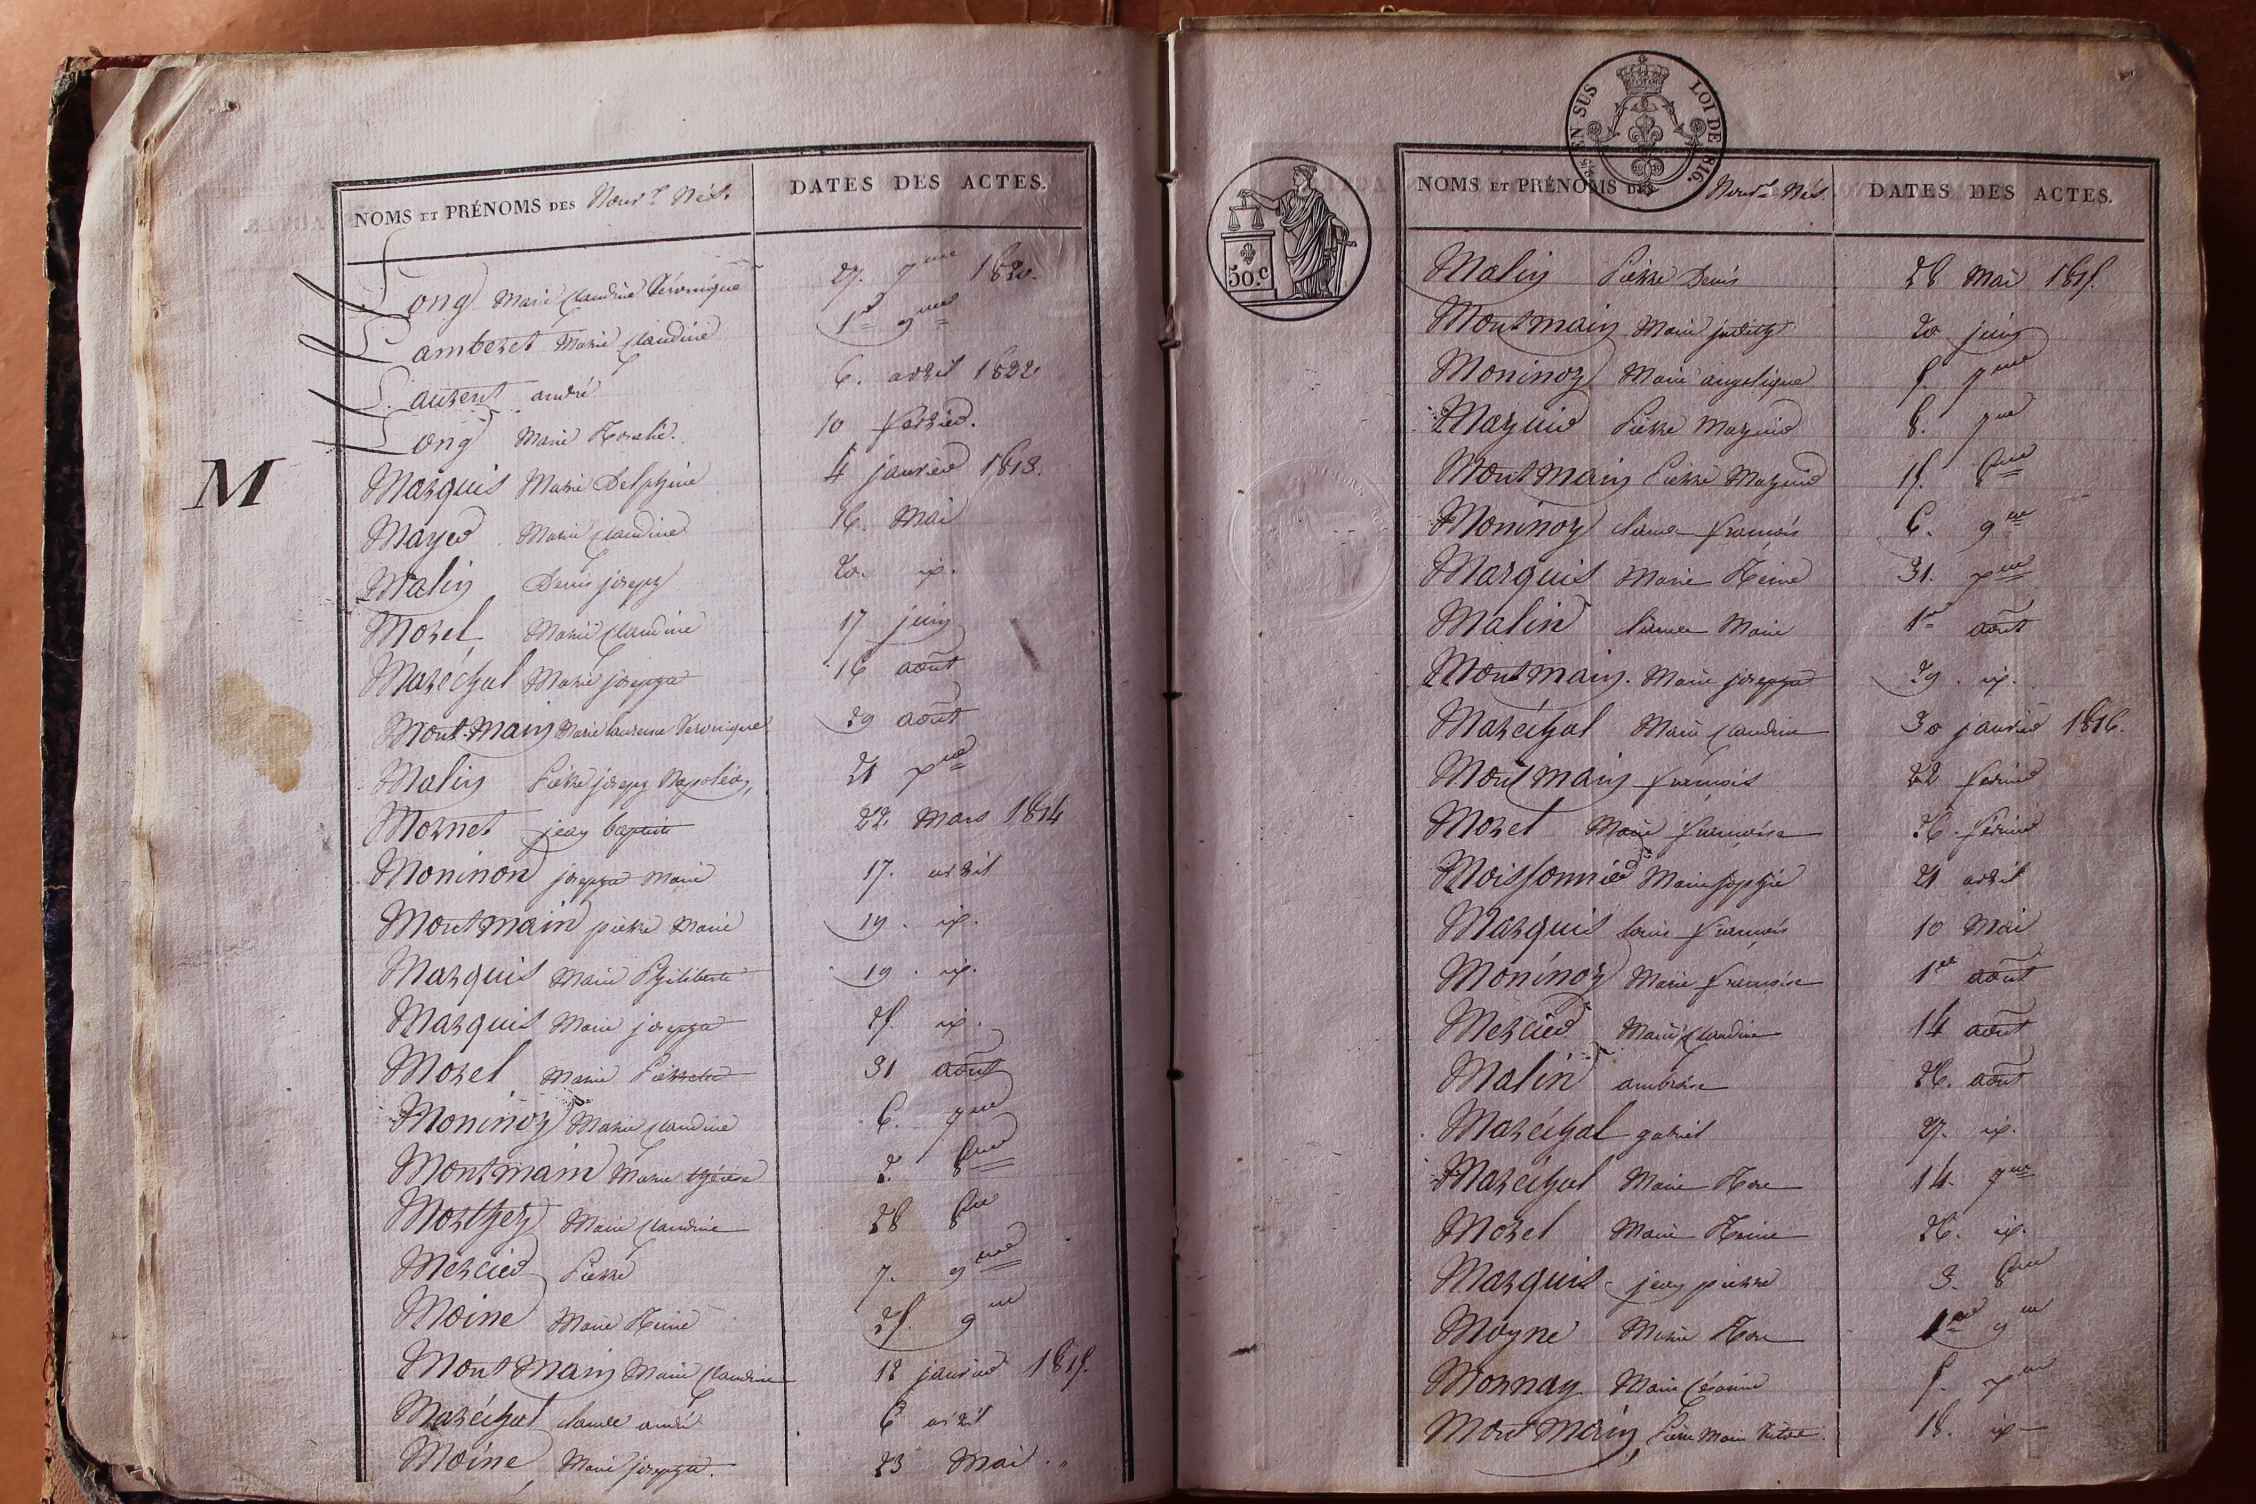 NOMS ET PRÉNOMS DES Nouv.x Nés. DATES DES ACTES.
Long Marie Claudine Véronique 27. 7.me 1820.
Lamberet Marie Claudine 1.er 9.me
Laurent andré 6. avril 1822
Long Marie Rosalie. 10 février.
M
Marquis Marie Delphine 4 janvier 1813.
Mayer Marie Claudine 16. Mai
Malin Denis joseph 20. id.
Morel Marie Claudine 17 juin
Maréchal Marie josephte 16 août
Montmain Marie Laurence Véronique 29 août
Malin Pierre joseph Napoléon 21 xme
Mornet jean baptiste 22. Mars 1814
Moninon josephte Marie 17. avril
Montmain pierre Marie 19. id.
Marquis Marie Philiberte 19. id.
Marquis Marie josephte 25. id.
Morel Marie Pierrette 31 août
Moninoz Marie Claudine 6. 7me
Montmain Marie thérèse 2. 8me
Morthez Marie Claudine 28 8re
Mercier Pierre 7. 9me
Moine Marie Reine 25. 9me
Montmain Marie Claudine 12 janvier 1815.
Maréchal Claude andré 6 avril
Moine Marie josephte. 23 Mai
EN SUS LOI DE 1816.
50.c
NOMS ET PRÉNOMS DES Nouv.x Nés. DATES DES ACTES.
Malin Pierre Denis 28 Mai 1815.
Montmain Marie judith 20 juin
Moninoz Marie angelique 5. 7me
Mayer Pierre 8. 7me
Montmain Pierre 15. 8me
Moninoz Claude françois 6. 9me
Marquis Marie Reine 31. xme
Malin Claude Marie 1er août
Montmain. Marie josephte 29. id.
Maréchal Marie Claudine 30 janvier 1816.
Montmain françois 22 février
Morel Marie françoise 26. février
Moissonnier Marie Sophie 21 avril
Marquis Louis françois 10 Mai
Moninoz Marie françoise 1er août
Mercier Marie Claudine 14 août
Malin ambroise 26. août
Maréchal gabriel 27. id.
Maréchal Marie Rose 14. 7me
Morel Marie Reine 26. id.
Marquis jean pierre 3. 8me
Moyne Marie Rose 1er 9me
Mornay. Marie Césarine 5. xme
Montmain, Pierre Marie Victor. 18. id